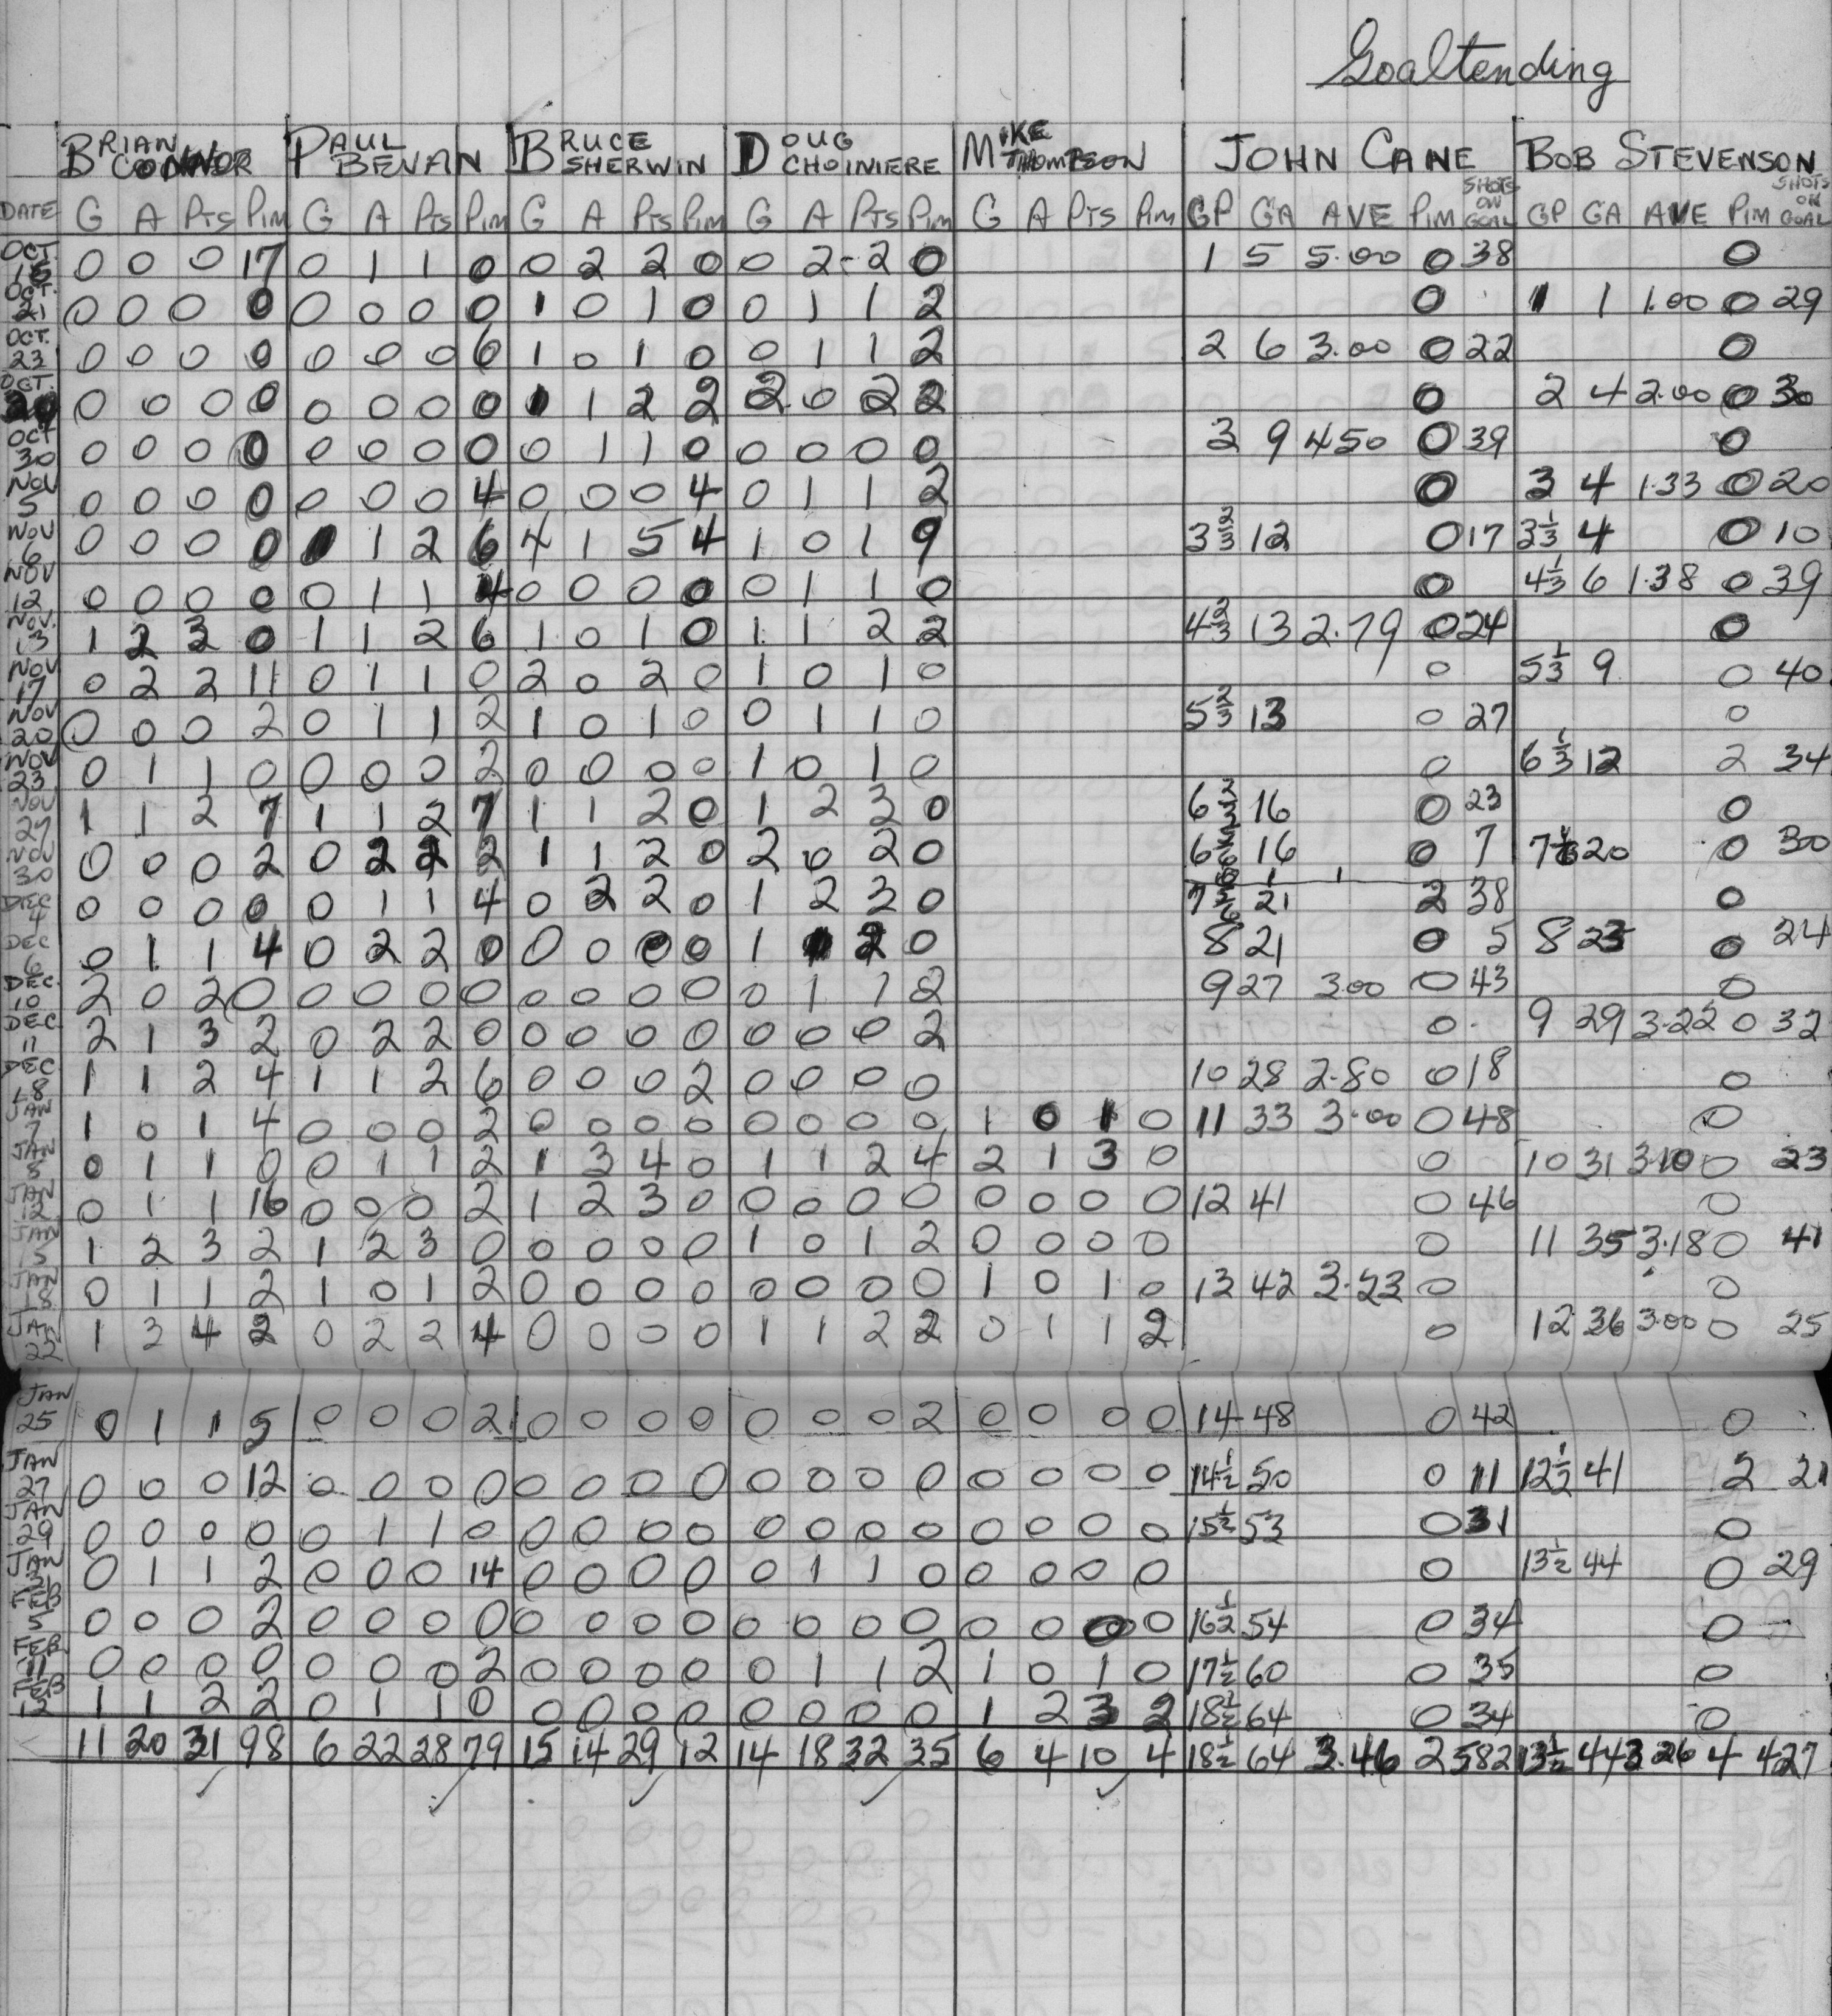 Goaltending
BRIAN CONNOR PAUL BEVAN BRUCE SHERWIN DOUG CHOINIERE MIKE THOMPSON JOHN CANE BOB STEVENSON
DATE G A PTS PIM G A PTS PIM G A PTS PIM G A PTS PIM G A PTS PIM GP GA AVE PIM SHOTS ON GOAL GP GA AVE PIM SHOTS ON GOAL
OCT. 15 0 0 0 17 0 1 1 0 0 2 2 0 0 2 2 0 1 5 5.00 0 38 0
OCT. 21 0 0 0 0 0 0 0 0 1 0 1 0 0 1 1 2 0 1 1 1.00 0 29
OCT. 23 0 0 0 0 0 0 0 6 1 0 1 0 0 1 1 2 2 6 3.00 0 22 0
OCT. 29 0 0 0 0 0 0 0 0 1 1 2 2 2 0 2 2 0 2 4 2.00 0 30
OCT 30 0 0 0 0 0 0 0 0 0 1 1 0 0 0 0 0 3 9 450 0 39 0
NOV 5 0 0 0 0 0 0 0 4 0 0 0 4 0 1 1 2 0 3 4 1.33 0 20
NOV 6 0 0 0 0 1 1 2 6 4 1 5 4 1 0 1 9 3 2/3 12 0 17 3 1/3 4 0 10
NOV 12 0 0 0 0 0 1 1 4 0 0 0 0 0 1 1 0 0 4 1/3 6 1.38 0 39
NOV. 13 1 2 3 0 1 1 2 6 1 0 1 0 1 1 2 2 4 2/3 13 2.79 0 24 0
NOV 17 0 2 2 11 0 1 1 0 2 0 2 0 1 0 1 0 0 5 1/3 9 0 40
NOV 20 0 0 0 2 0 1 1 2 1 0 1 0 0 1 1 0 5 2/3 13 0 27 0
NOV 23 0 1 1 0 0 0 0 2 0 0 0 0 1 0 1 0 0 6 1/3 12 2 34
NOV 27 1 1 2 7 1 1 2 7 1 1 2 0 1 2 3 0 6 2/3 16 0 23 0
NOV 30 0 0 0 2 0 2 2 2 1 1 2 0 2 0 2 0 6 16 0 7 7 20 0 30
DEC 4 0 0 0 0 0 1 1 4 0 2 2 0 1 2 3 0 7 21 2 38 0
DEC 6 0 1 1 4 0 2 2 0 0 0 0 0 1 1 2 0 8 21 0 5 8 23 0 24
DEC. 10 2 0 2 0 0 0 0 0 0 0 0 0 0 1 1 2 9 27 3.00 0 43 0
DEC 11 2 1 3 2 0 2 2 0 0 0 0 0 0 0 0 2 0 9 29 3.22 0 32
DEC 18 1 1 2 4 1 1 2 6 0 0 0 2 0 0 0 0 10 28 2.80 0 18 0
JAN 7 1 0 1 4 0 0 0 2 0 0 0 0 0 0 0 0 1 0 1 0 11 33 3.00 0 48 0
JAN 8 0 1 1 0 0 1 1 2 1 3 4 0 1 1 2 4 2 1 3 0 0 10 31 3.10 0 23
JAN 12 0 1 1 16 0 0 0 2 1 2 3 0 0 0 0 0 0 0 0 0 12 41 0 46 0
JAN 15 1 2 3 2 1 2 3 0 0 0 0 0 1 0 1 2 0 0 0 0 0 11 35 3.18 0 41
JAN 18 0 1 1 2 1 0 1 2 0 0 0 0 0 0 0 0 1 0 1 0 13 42 3.23 0 0
JAN 22 1 3 4 2 0 2 2 4 0 0 0 0 1 1 2 2 0 1 1 2 0 12 36 3.00 0 25
JAN 25 0 1 1 5 0 0 0 2 0 0 0 0 0 0 0 2 0 0 0 0 14 48 0 42 0
JAN 27 0 0 0 12 0 0 0 0 0 0 0 0 0 0 0 0 0 0 0 0 14 1/2 50 0 11 12 1/2 41 2 21
JAN 29 0 0 0 0 0 1 1 0 0 0 0 0 0 0 0 0 0 0 0 0 15 1/2 53 0 31 0
JAN 0 1 1 2 0 0 0 14 0 0 0 0 0 1 1 0 0 0 0 0 0 13 1/2 44 0 29
FEB 5 0 0 0 2 0 0 0 0 0 0 0 0 0 0 0 0 0 0 0 0 16 1/2 54 0 34 0
FEB 11 0 0 0 0 0 0 0 2 0 0 0 0 0 1 1 2 1 0 1 0 17 1/2 60 0 35 0
FEB 12 1 1 2 2 0 1 1 0 0 0 0 0 0 0 0 0 1 2 3 2 18 1/2 64 0 34 0
11 20 31 98 6 22 28 79 15 14 29 12 14 18 32 35 6 4 10 4 18 1/2 64 3.46 2 582 13 1/2 44 3 26 4 427